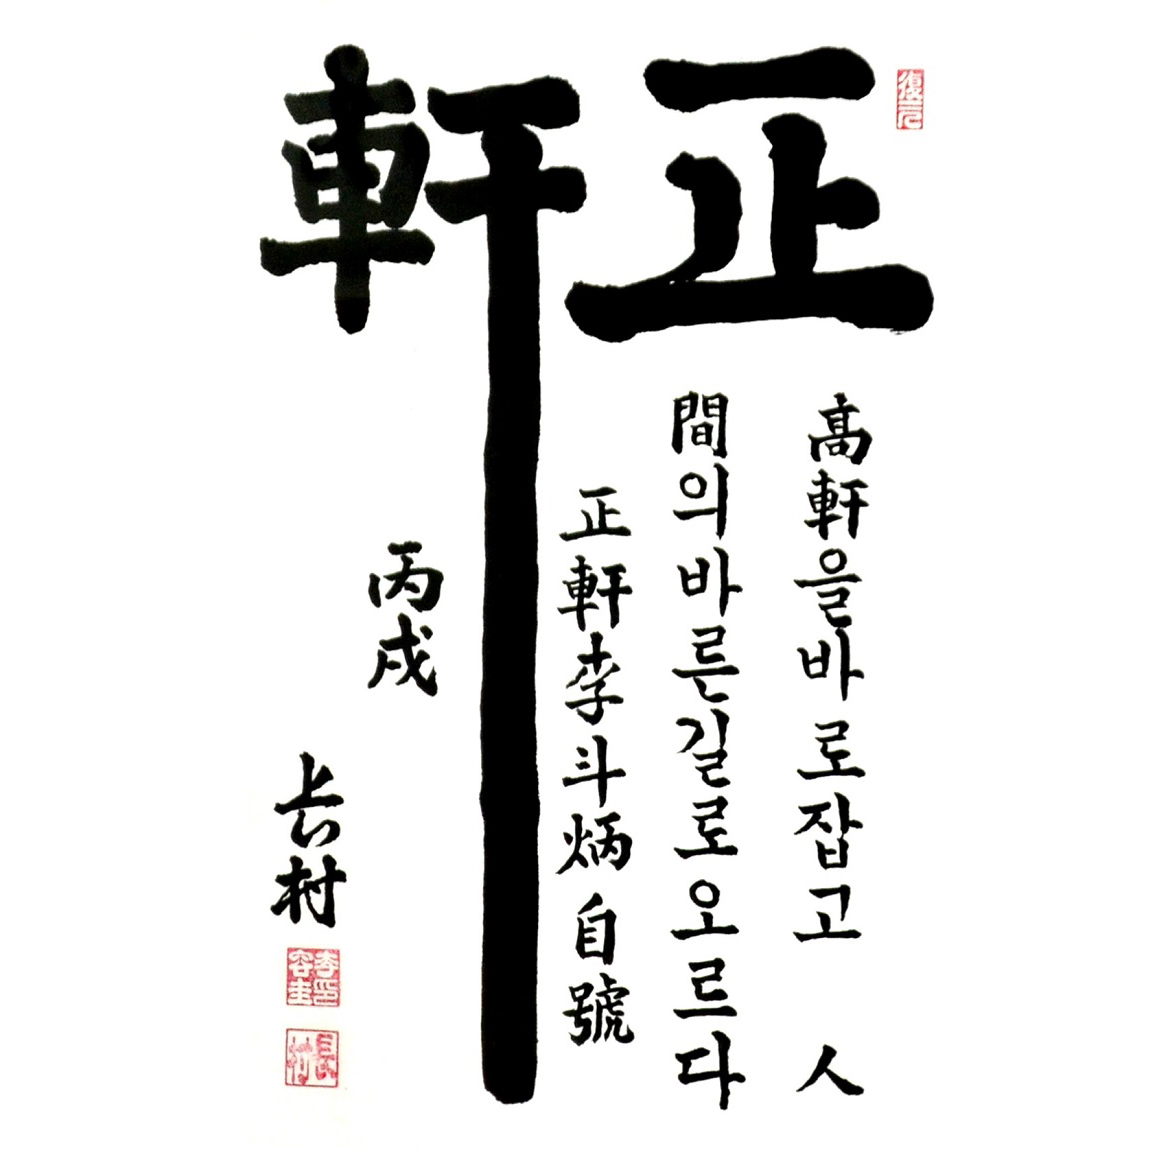 復元
正軒
高軒을바로잡고 人
間의바른길로오르다
正軒李斗炳自號
丙戌
長村
李印容圭
長村